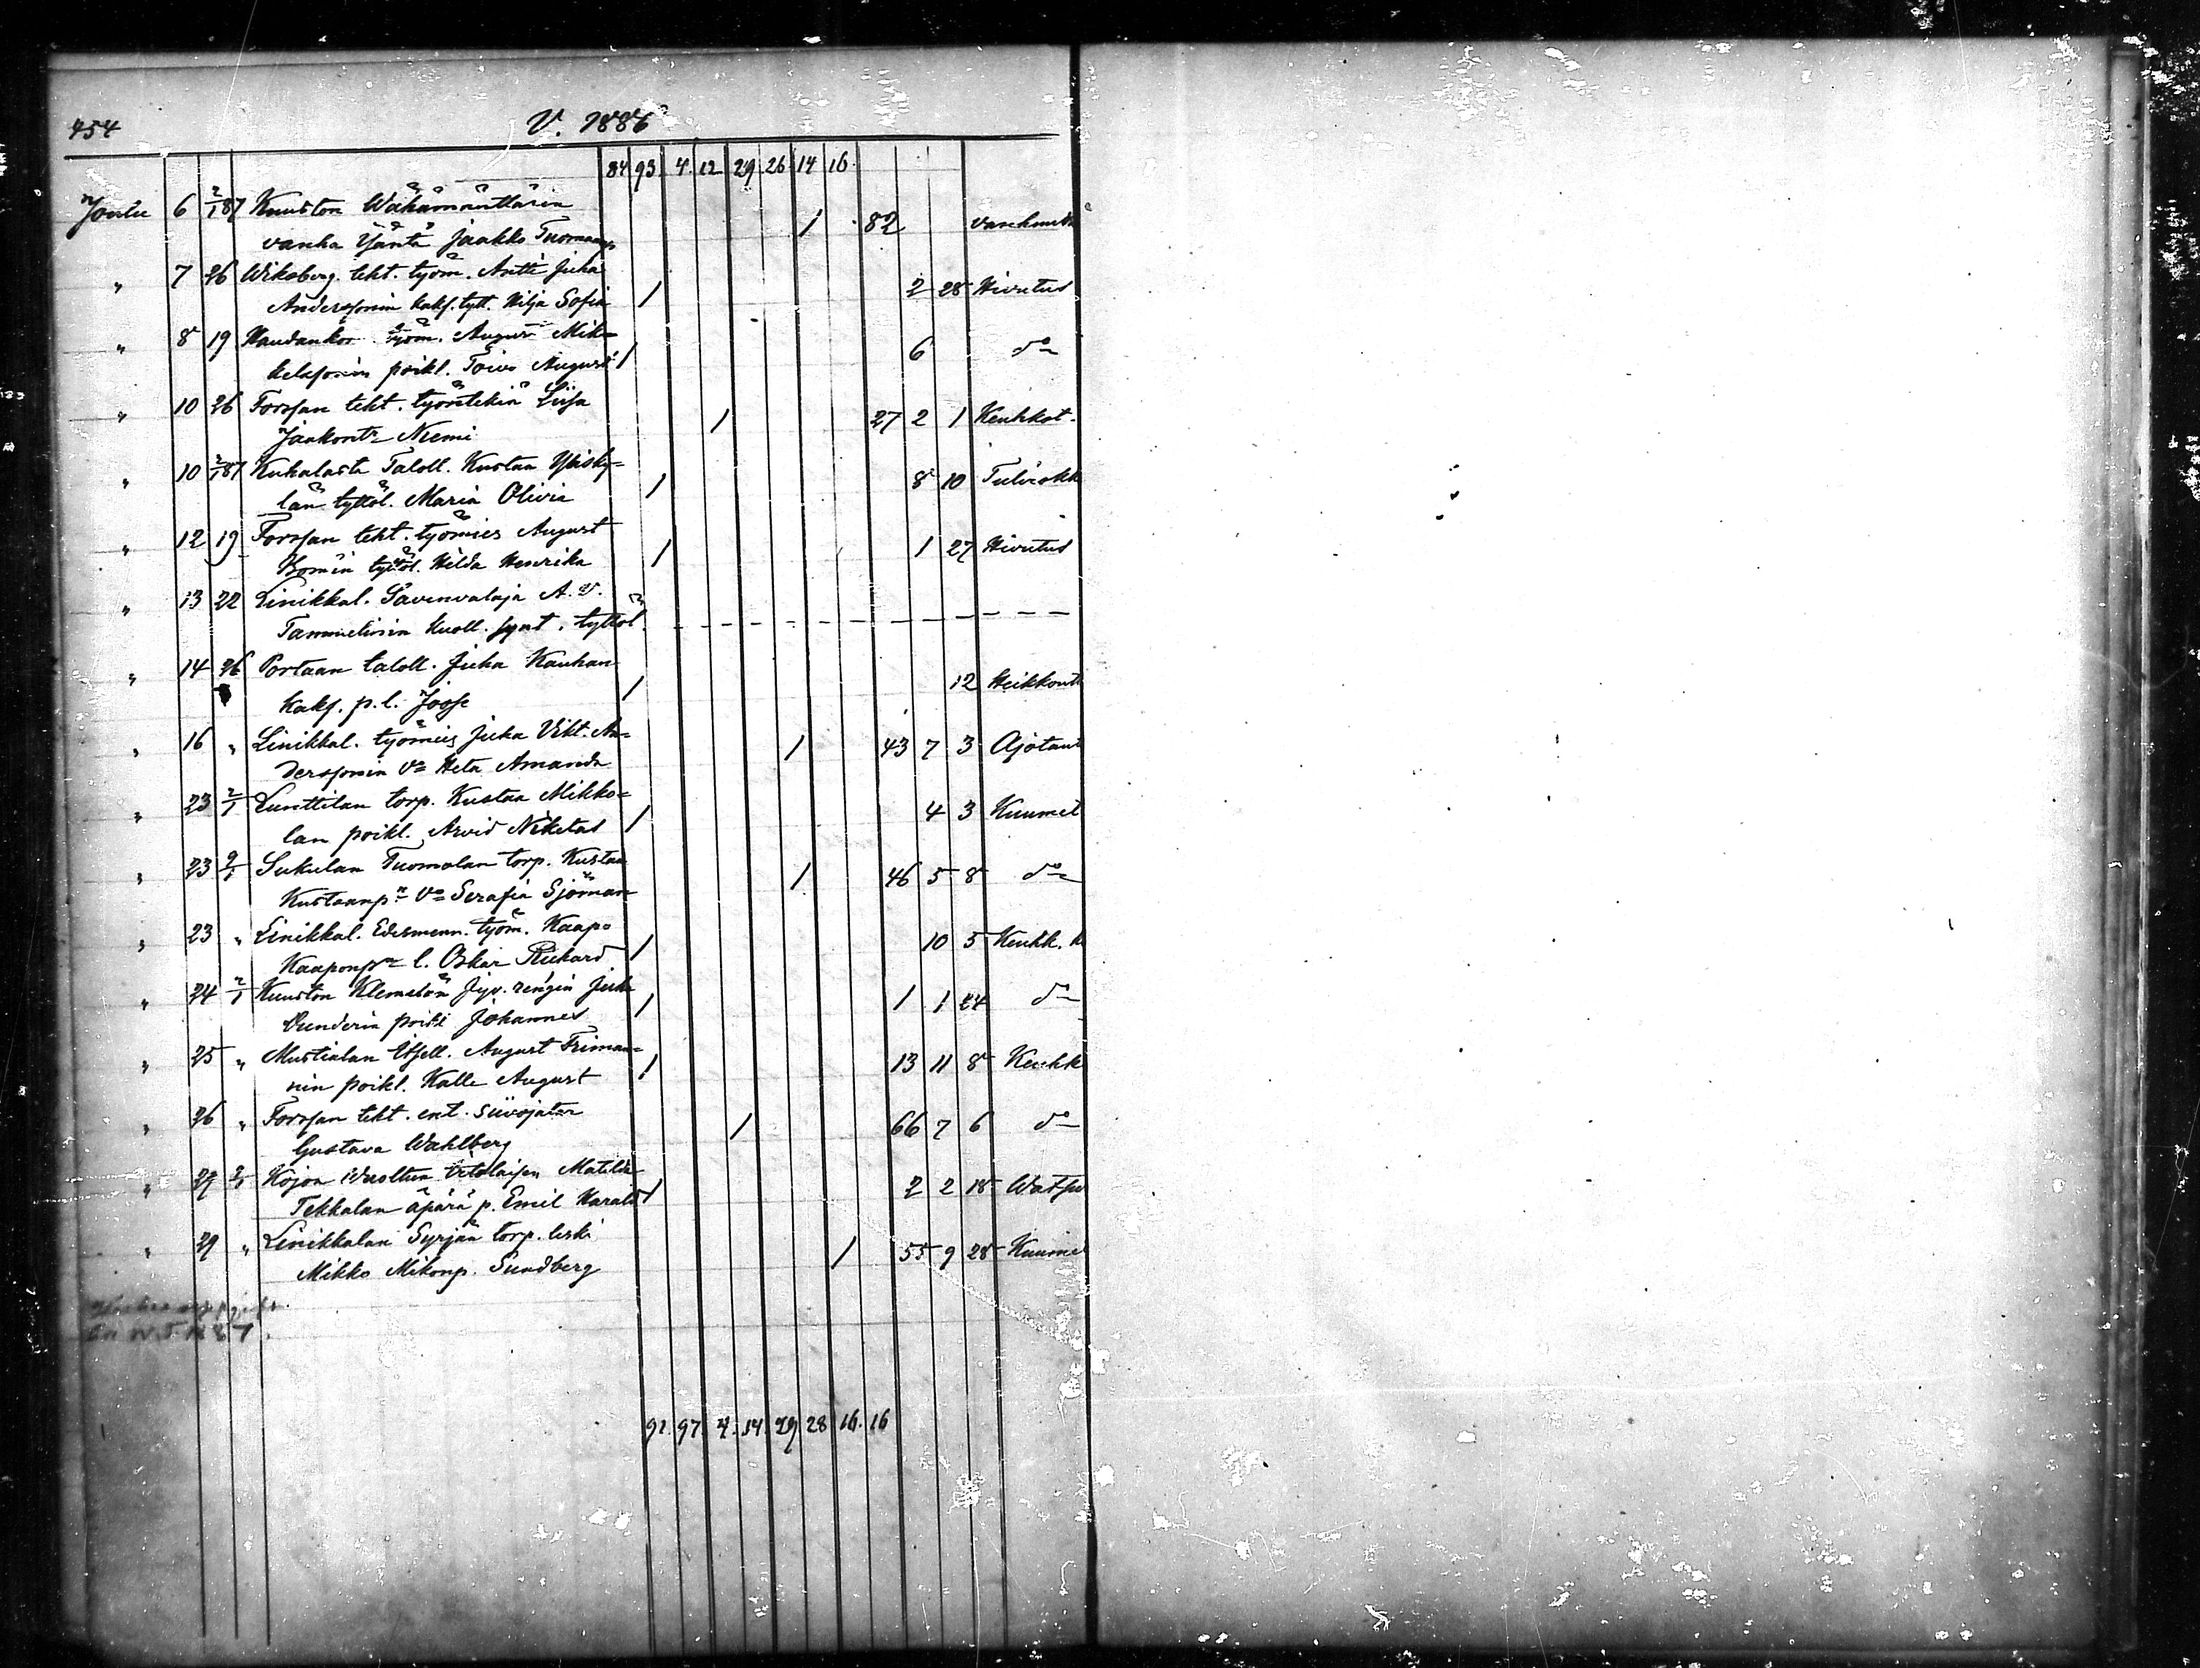 454 V. 1886
84 93 4 12 29 26 14 16
Joulu 6 2/1 87 Kuuston Wähämänttärin
vanha isäntä Jaakko Tuomaanp 1 82 vanhuutta
" 7 26 Wiksberg. teht. työm. Antti Juha
Anderssonin kaks. tytt. Hilja Sofia 1 2 28 Hivutus
" 8 19 Haudankor. työm. August Mik=
kelssonin poikl. Toivo August 1 6 do
" 10 26 Forssan teht. työntekiä Liisa
Jaakont. Niemi 1 27 2 1 Keuhkot.
" 10 2/1 87 Kuhalasta Taloll. Kustaa Ylisky=
län tyttöl. Maria Olivia 1 8 10 Tulirokk
" 12 19 Forssan teht. työmies August
tyttöl. Hilda Henrika 1 1 27 Hivutus
" 13 22 Linikkal. Savenvalaja A. V.
Tammelinin kuoll. synt. tyttöl. - - - - - - - - - -
" 14 26 Portaan taloll. Juha Kauhan
kaks. p. l. Joose 1 12 Heikkoutt
" 16 " Linikkal. työmies Juha Vikt. An=
derssonin Vo Heta Amanda 1 43 7 3 Ajotaut
" 23 2/1 Lunttilan torp. Kustaa Mikko=
lan poikl. Arvid Niketas 1 4 3 Kuumet
" 23 9/1 Sukulan Tuomolan torp. Kustaa
Kustaanp. Vo Serafia Sjöman 1 46 5 8 do
" 23 " Linikkal. Edesmenn. työm. Kaapo
Kaaponp. l. Oskar Rickard 1 10 5 Keuhk. k
" 24 2/1 Kuuston Klemelän rengin Juha
poikl Johannes 1 1 1 24 do
" 25 " Mustialan Itsell. August Friman=
nin poikl. Kalle August 1 13 11 8 Keuhk
" 26 " Forssan teht. ent. siivojatar
Gustava Wahlberg 1 66 7 6 do
" 29 2/1 Kojon itselaisen Matilda
Tekkalan äpärä p. Emil Harald 1 2 2 18 Watsu
" 29 " Linikkalan Syrjän torp. leski
Mikko Mikonp. Sundberg 1 55 9 28 Kuume
91. 97. 4. 14. 29 28 16. 16